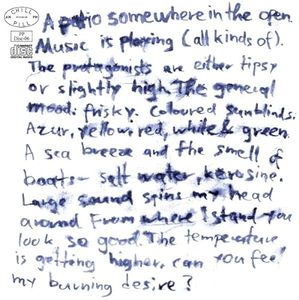 CHILL
PILL
PP
Disc-06
COMPACT
disc
DIGITAL AUDIO
A patio somewhere in the open.
Music is playing (all kinds of).
The protagonists are either tipsy
or slightly high. The general
mood: frisky. Coloured sunblinds:
Azur, yellow, red, white & green.
A sea breeze and the smell of
boats - salt water, kerosine.
Large sound spins my head
around From where I stand you
look so good. The temperature
is getting higher. Can you feel
my burning desire?